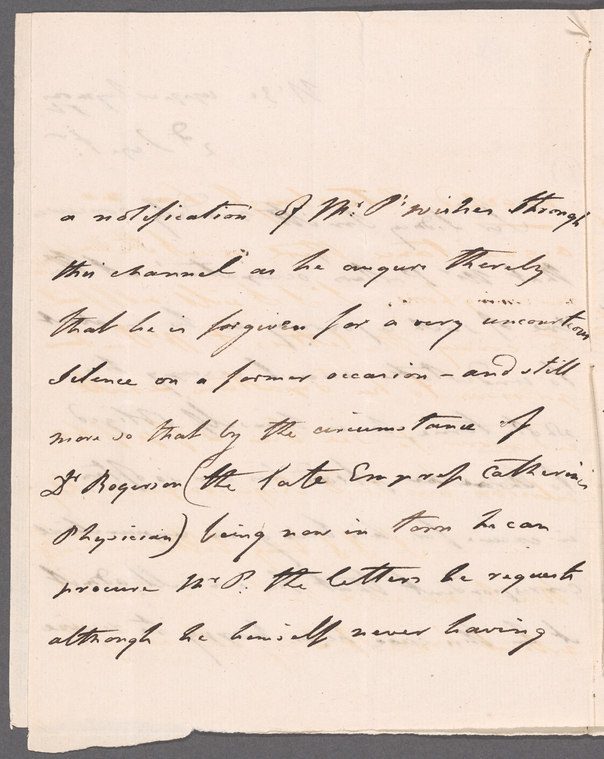 a notification of Mr. P's wishes through
this channel as he augurs thereby
that he is forgiven for a very uncourteous
silence on a former occasion – and still
more so that by the circumstance of
Dr Rogerson (the late Empress Catherine's
Physician) being now in town he can
procure Mr P. the letters he requests
although he himself never having